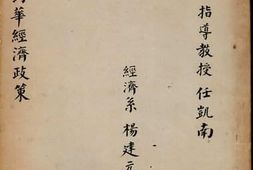 指導教授 任凱南
經濟系 楊建元
華經濟政策